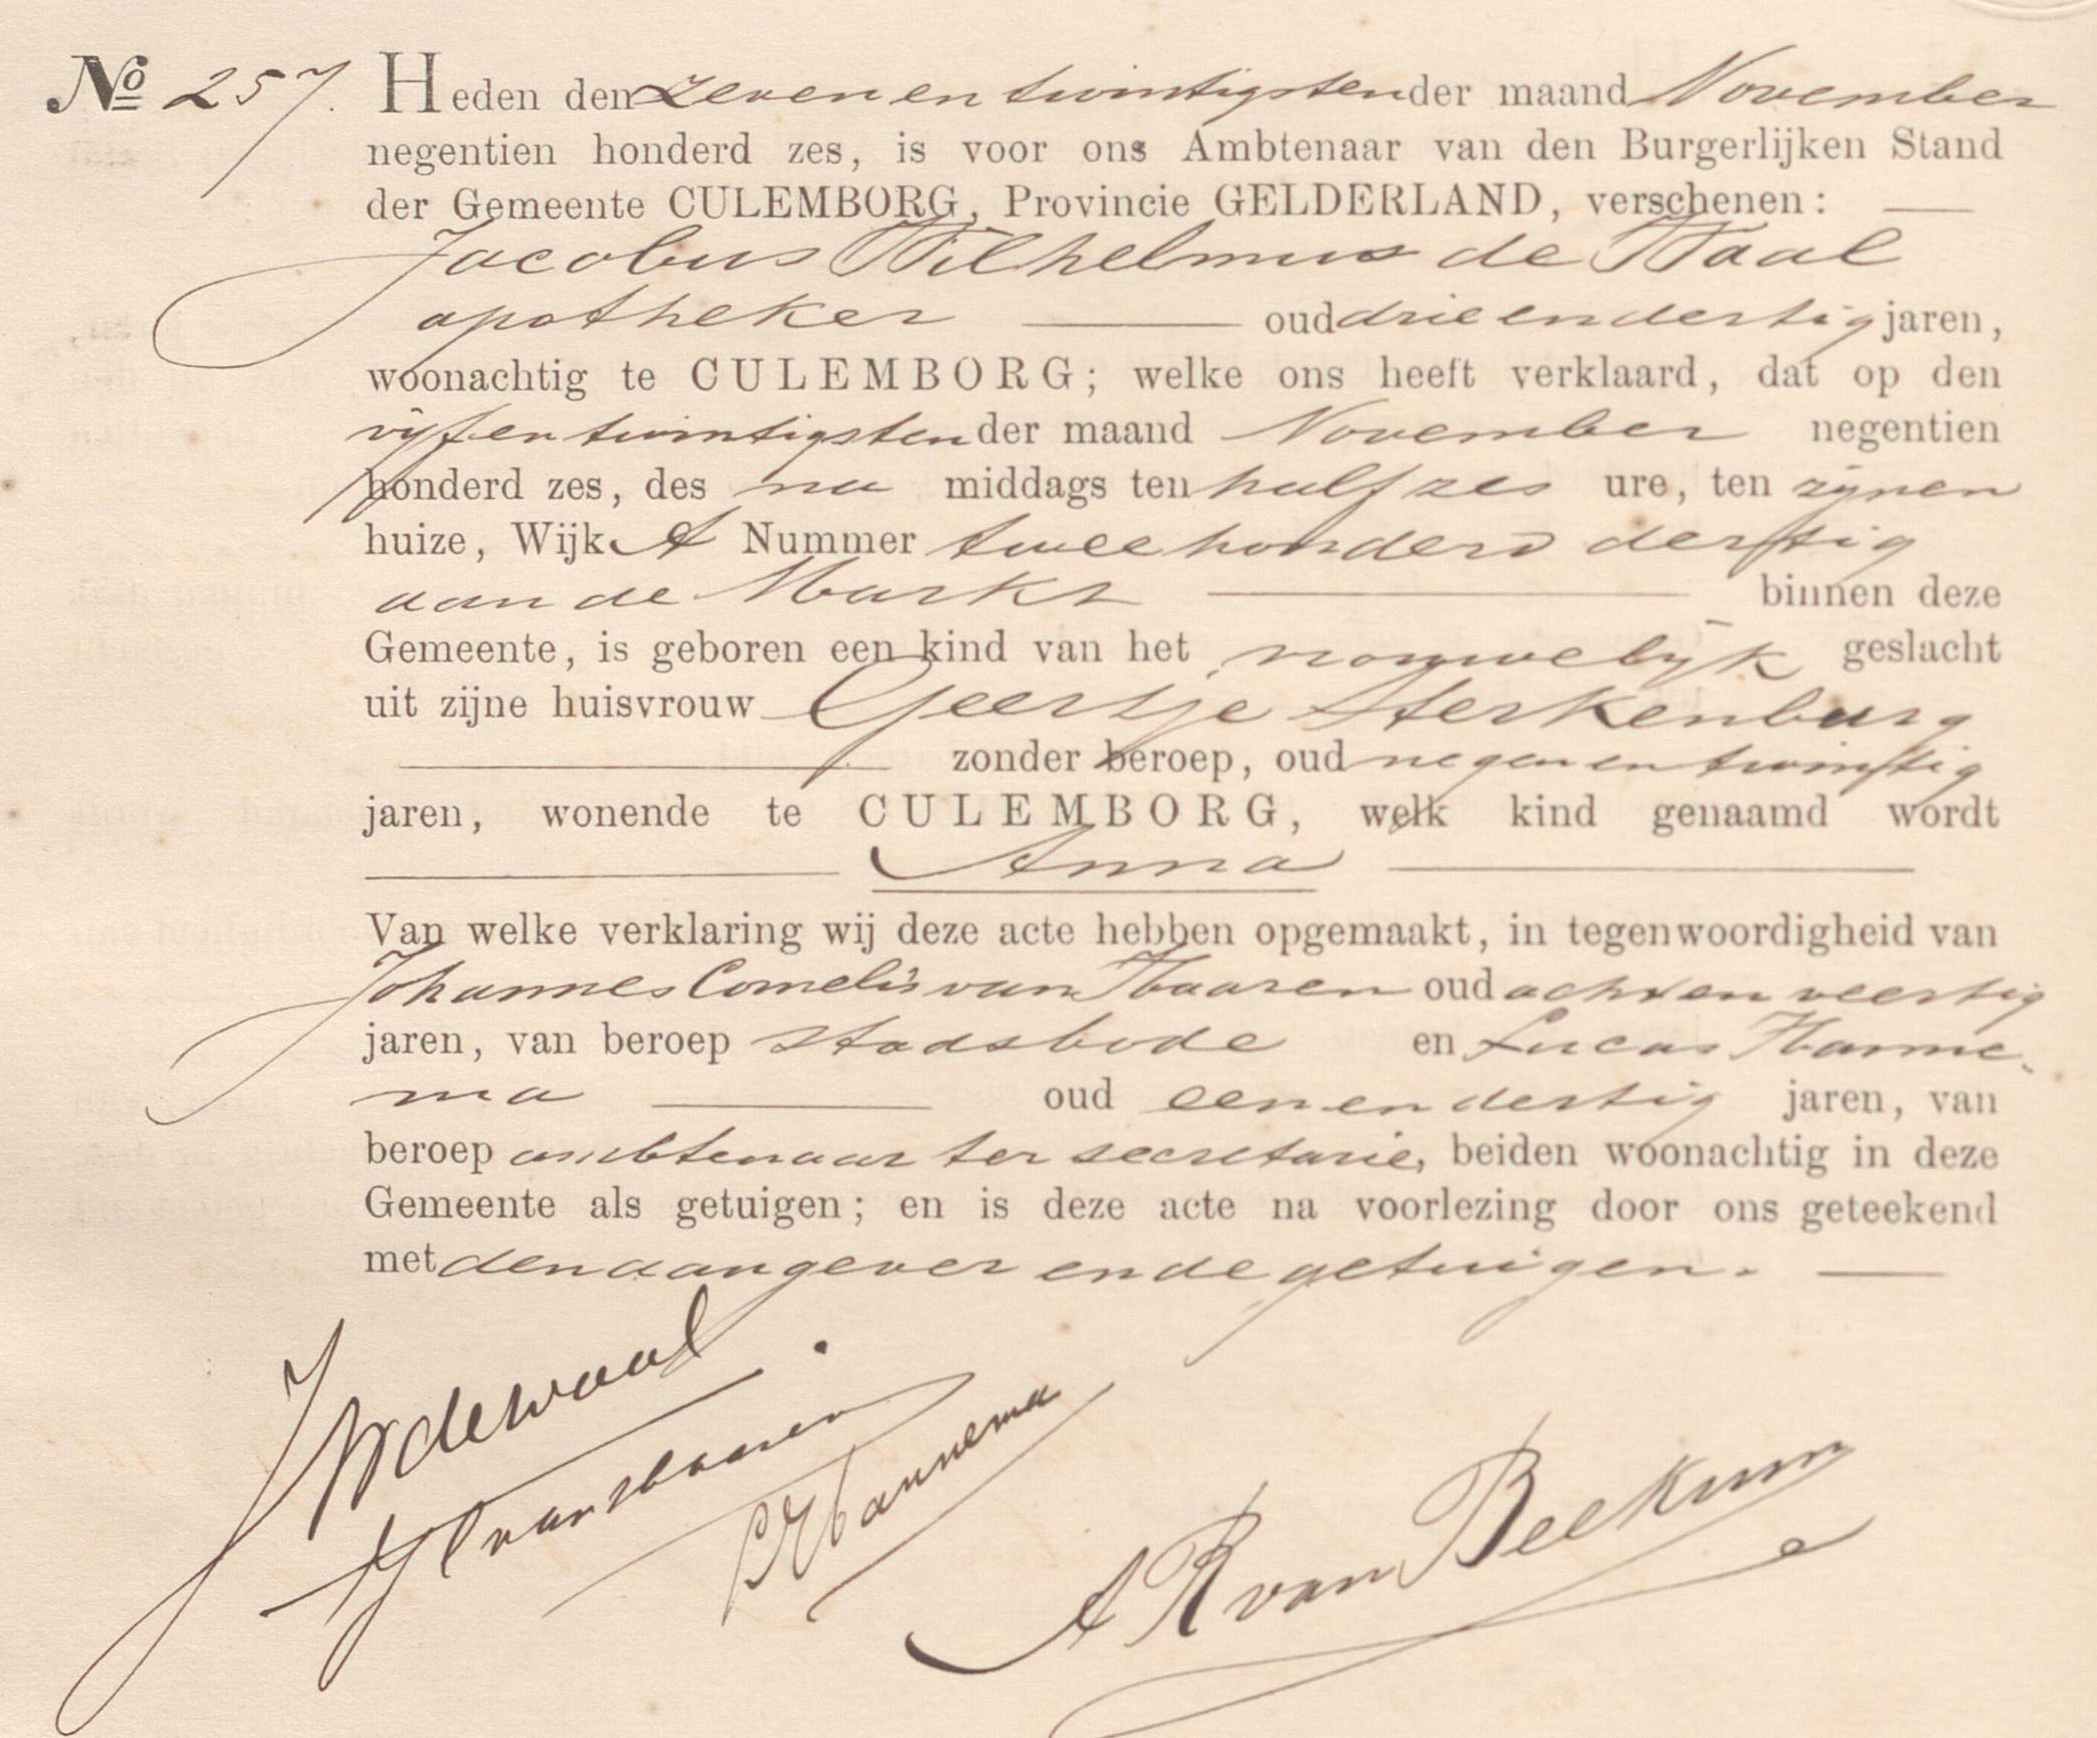 No 257. Heden den zevenentwintigsten der maand November
negentien honderd zes, is voor ons Ambtenaar van den Burgerlijken Stand
der Gemeente CULEMBORG, Provincie GELDERLAND, verschenen:
Jacobus Wilhelmus de Waal
apotheker oud drieendertig jaren,
woonachtig te CULEMBORG; welke ons heeft verklaard, dat op den
vijfentwintigsten der maand November negentien
honderd zes, des na middags ten half zes ure, ten zijnen
huize, Wijk A Nummer tweehonderd dertig
aan de Markt binnen deze
Gemeente, is geboren een kind van het vrouwelijk geslacht
uit zijne huisvrouw Geertje Sterkenburg
zonder beroep, oud negenentwintig
jaren, wonende te CULEMBORG, welk kind genaamd wordt
Anna
Van welke verklaring wij deze acte hebben opgemaakt, in tegenwoordigheid van
Johannes Cornelis van Haaren oud achtenveertig
jaren, van beroep stadsbode en Lucas Hanne-
ma oud eenendertig jaren, van
beroep ambtenaar ter secretarie, beiden woonachtig in deze
Gemeente als getuigen; en is deze acte na voorlezing door ons geteekend
met den aangever en de getuigen.
JW de Waal.
JC van Haaren
L Hannema
A R van Beekum